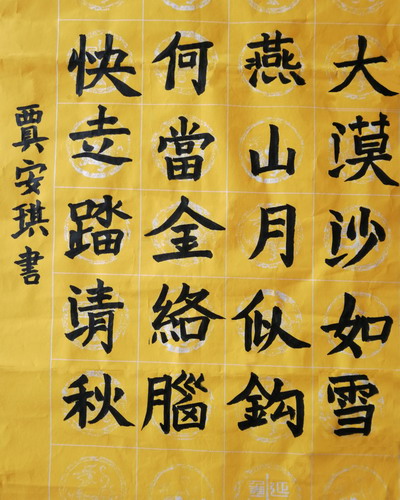 大漠沙如雪
燕山月似鈎
何當全絡腦
快走踏清秋
賈安琪書